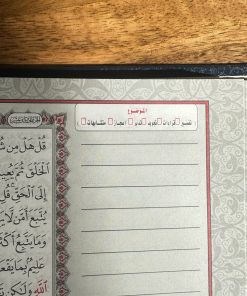 الموضوع
تفسير قراءات تجويد تدبر إعجاز متشابهات
قُلْ هَلْ مِن
الْخَلْقَ ثُمَّ يُعِيدُ
إِلَى الْحَقِّ قُلِ
يُتَّبَعَ أَمَّن لَّا
وَمَا يَتَّبِعُ أَكْثَ
عَلِيمٌ بِمَا يَفْعَ
اللَّهِ وَلَٰكِن